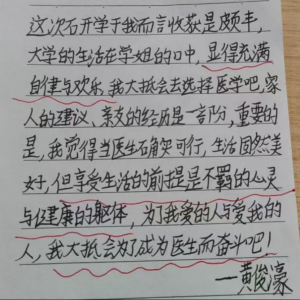 这次石开学于我而言收获是颇丰,
大学的生活在学姐的口中,显得充满
自律与欢乐,我大抵会去选择医学吧,家
人的建议、亲友的经历是一部份,重要的
是,我觉得当医生石角实可行,生活固然美
好,但享受生活的前提是不羁的心灵
与健康的躯体,为了我爱的人与爱我的
人,我大抵会为了成为医生而奋斗吧!
—黄俊濠